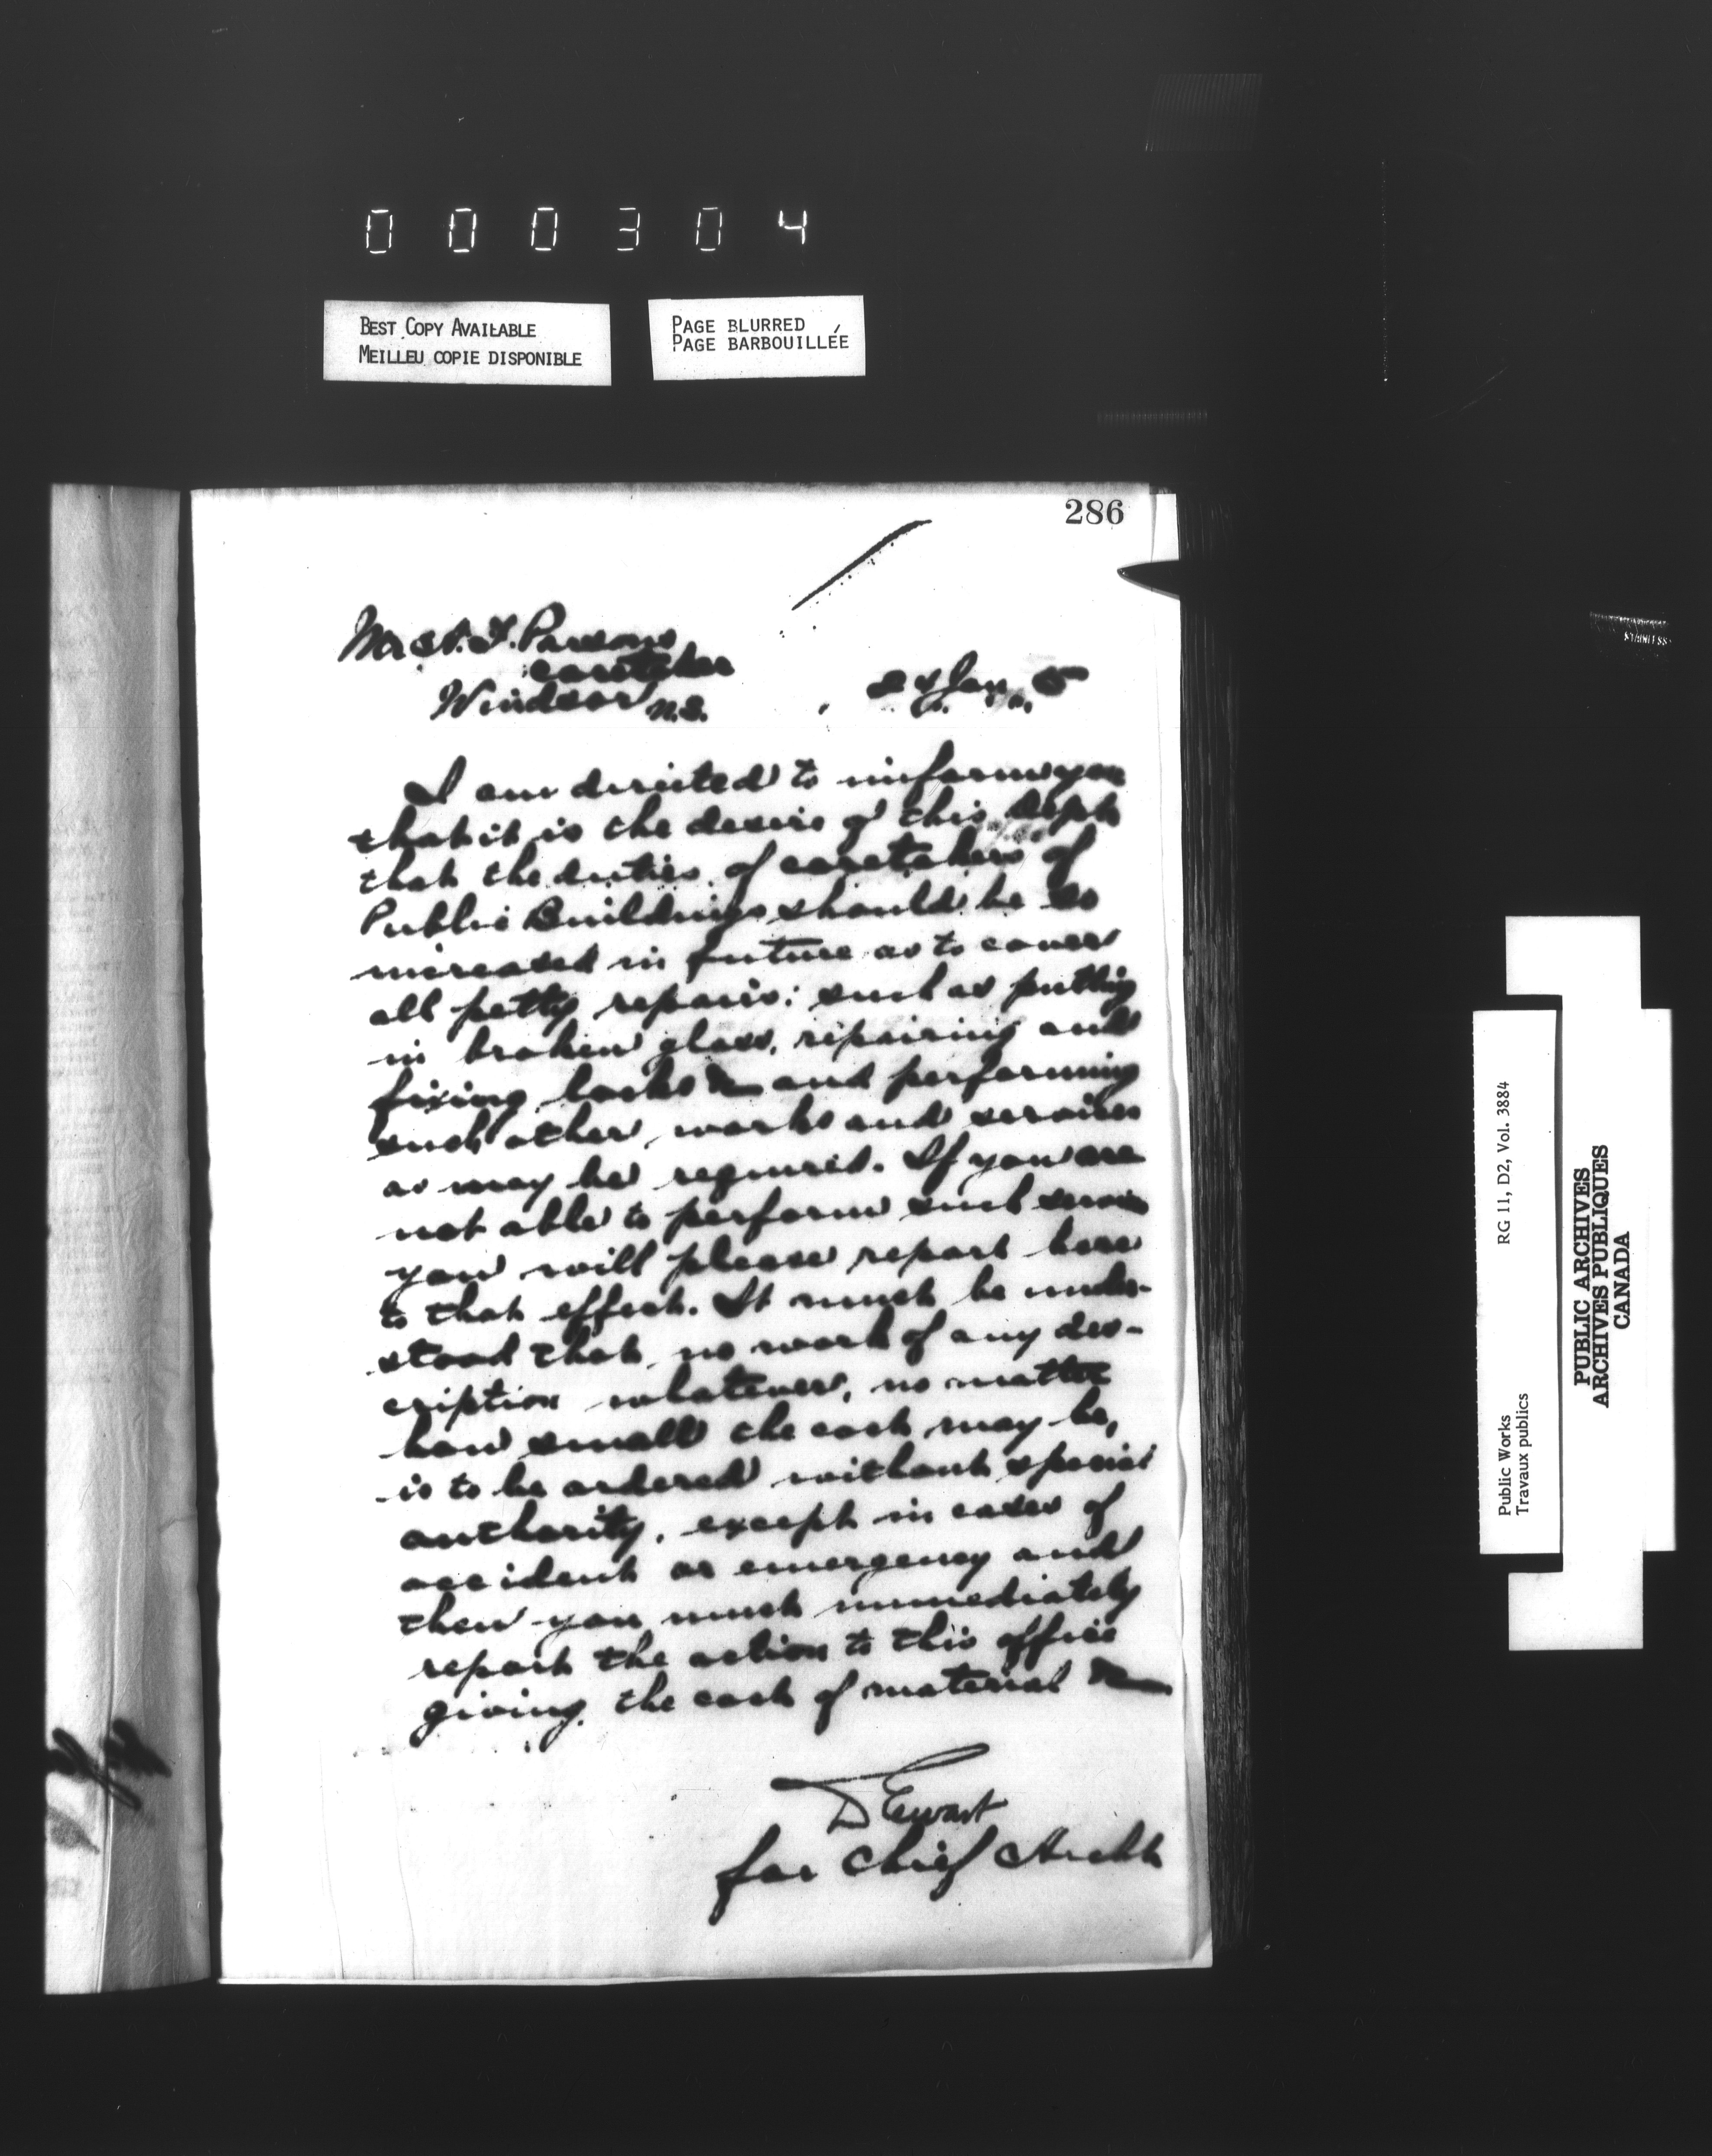 000304
BEST COPY AVAILABLE
MEILLEU COPIE DISPONIBLE
PAGE BLURRED
PAGE BARBOUILLÉE
286
Parsons
Caretaker
Windsor N.S.
Jan 5
I am directed to inform you
that it is the desire of this Dept
that the duties of caretakers of
Public Buildings should be so
increased in future as to cover
all petty repairs; such as putting
in broken glass, repairing and
fixing locks &c and performing
such other works and services
as may be required. If you are
not able to perform such service
you will please report here
to that effect. It must be under-
stood that no work of any des-
cription whatever, no matter
how small the cost may be,
is to be ordered without special
authority, except in cases of
accident or emergency and
then you must immediately
report the action to this office
giving the cost of material &c
D Ewart
for Chief Archt
Public Works
Travaux publics
RG 11, D2, Vol. 3884
PUBLIC ARCHIVES
ARCHIVES PUBLIQUES
CANADA